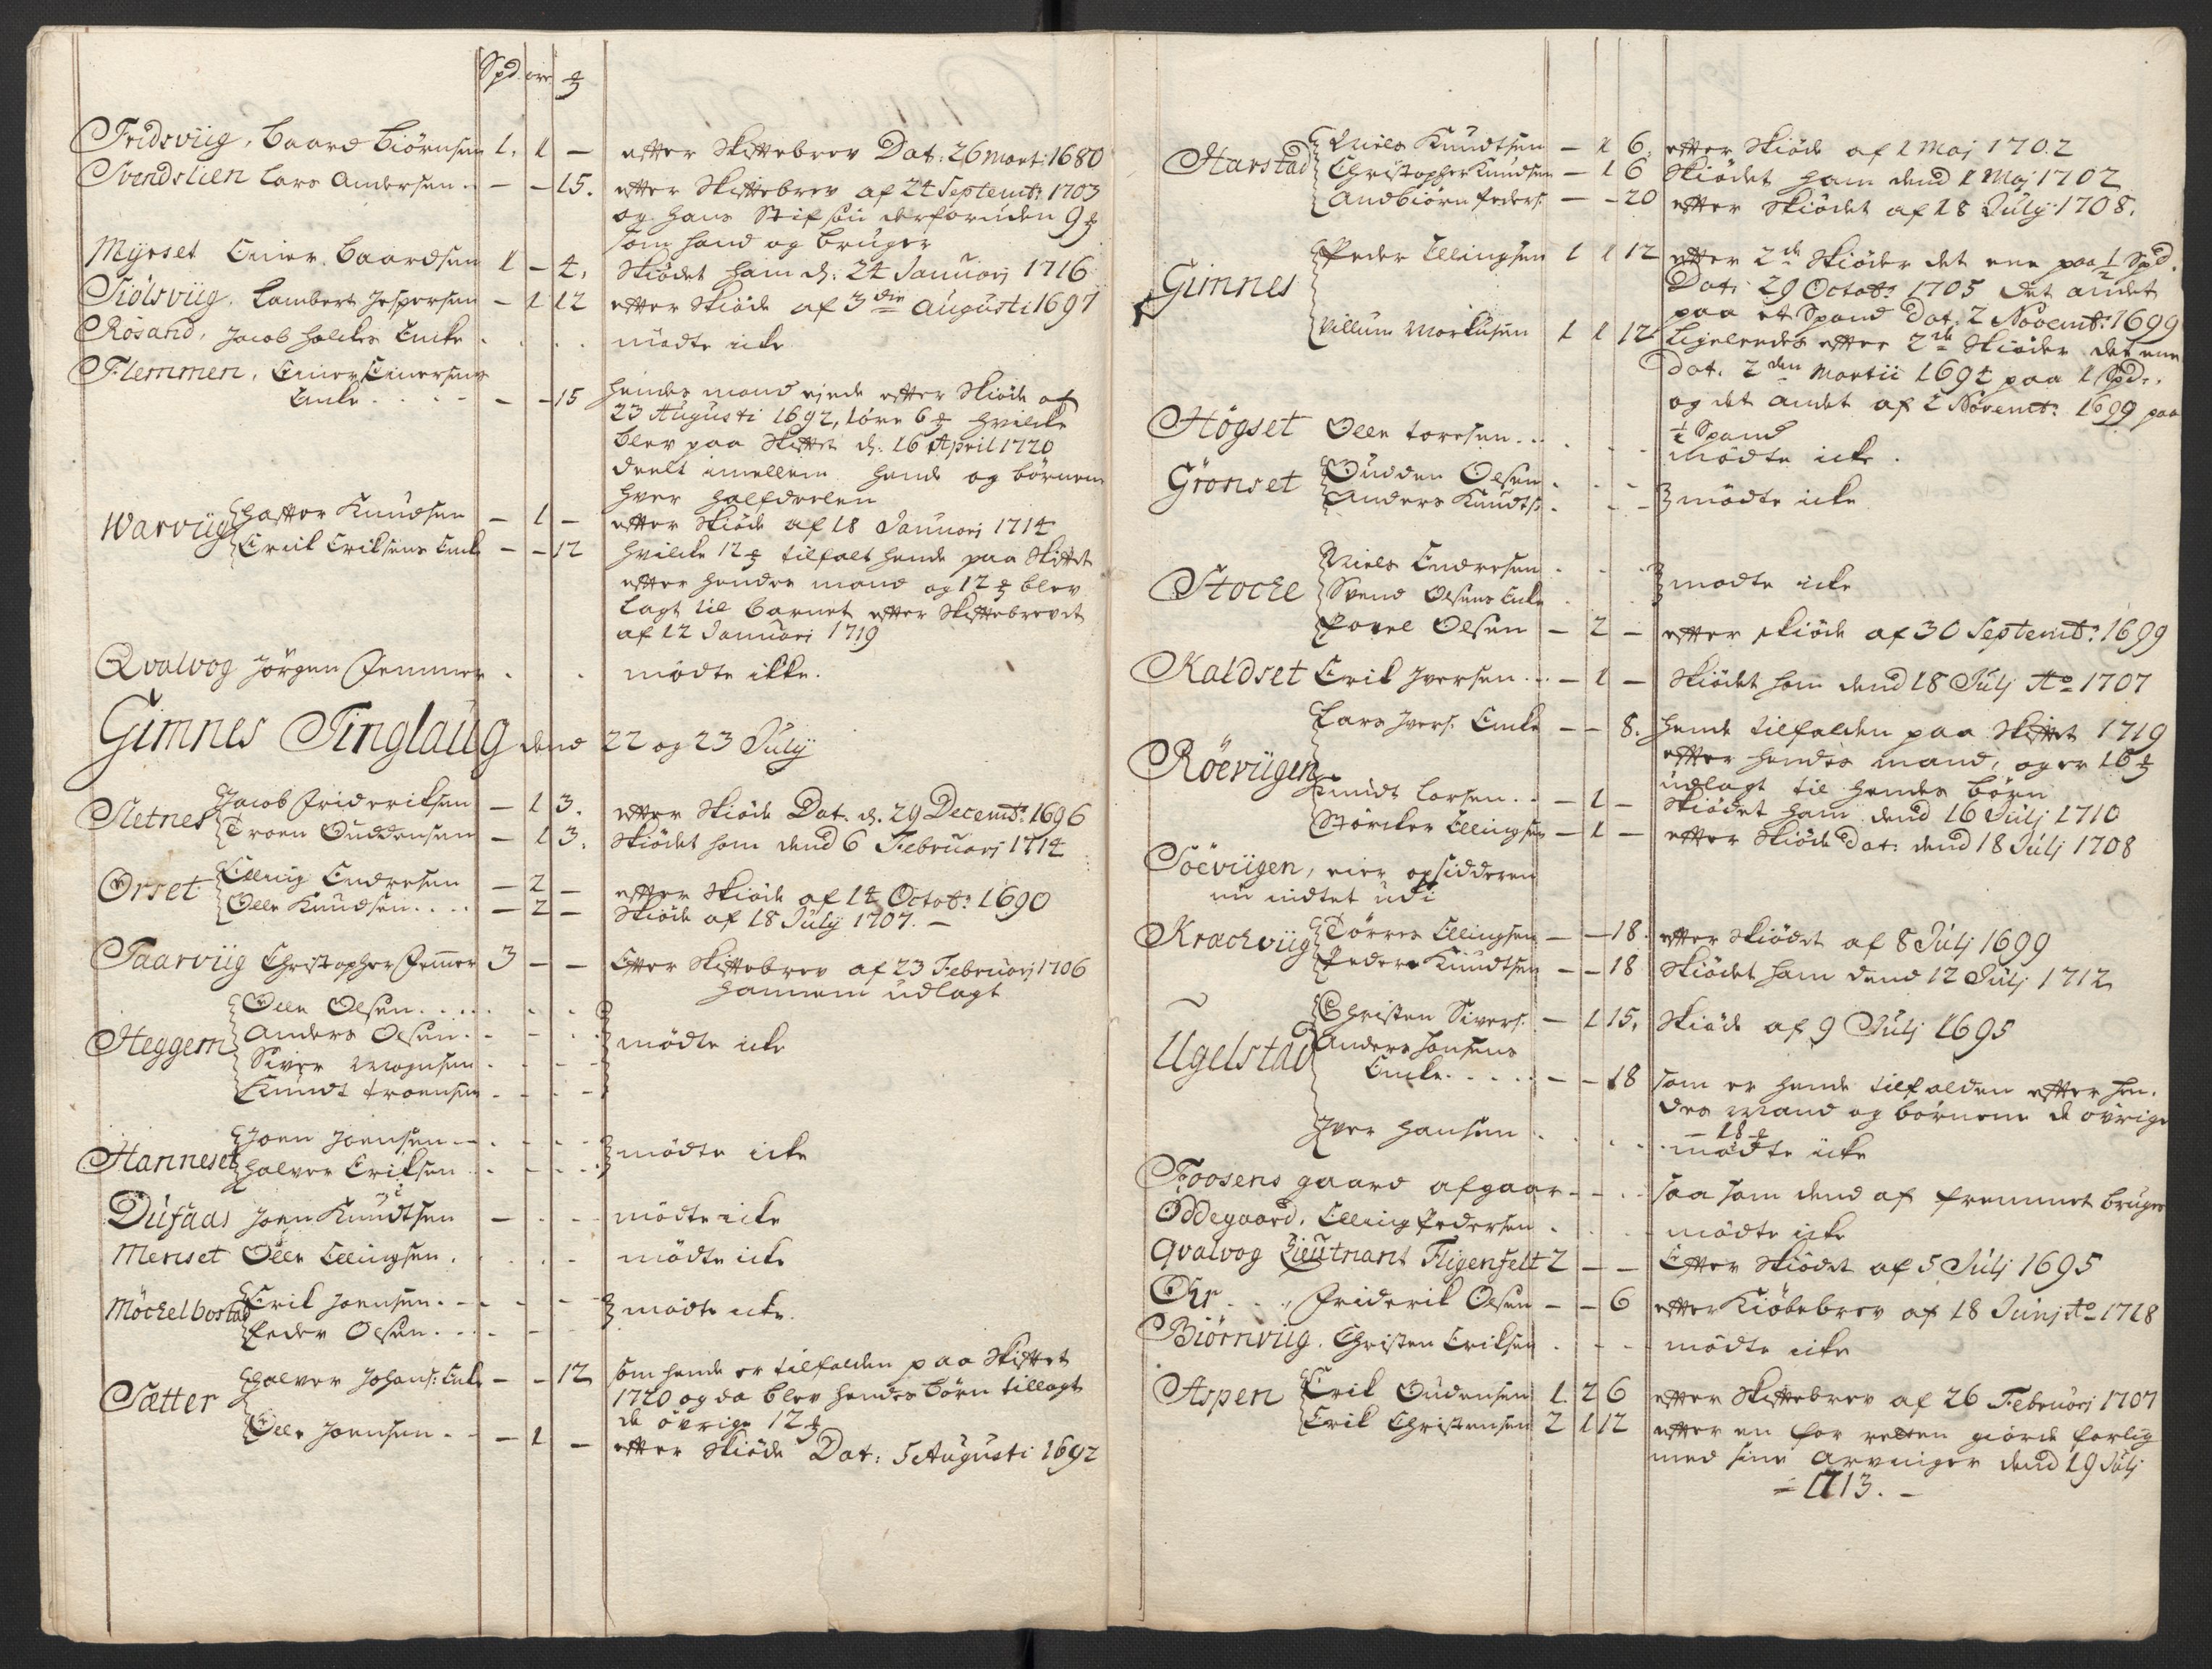 Spd. ore ₰
Fridsviig, Baard Biörnsen 1. 1 — efter Skiftebrev Dat: 26 Marti 1680
Svendslien Lars Andersen — — 15. efter Skiftebrev af 24 Septembr: 1703
og hans Stifsön desforuden 9 ₰
som hand og bruger
Myrset Einer Baardsen 1 — 4. Skiödet ham d: 24 Januarj 1716
Siölsviig, Lambert Jespersen — 1 12 efter Skiöde af 3die Augusti 1697
Rösand, Jacob Holckes Encke . . . mödte icke
Flemmen, Einer Einersens
Encke . . . — — 15 hendes mand eiede efter Skiöde af
23 Augusti 1692, 1 öre 6 ₰ hvilcke
blev paa Skiftet d: 16 April 1720
deelt imellem hende og börnene
hver halfdeelen
Warviig Hastor Knudsen — 1 — efter Skiöde af 18 Januarj 1714
Erik Eriksens Encke — — 12 hvilcke 12 ₰ tilfalt hende paa Skiftet
efter hendes mand og 12 ₰ blev
lagt til Barnet efter Skiftebrevet
af 12 Januari 1719
Qvalvog Jörgen Jemmer . . mödte ikke.
Gimnes Tinglaug dend 22 og 23 Julij
Sletnes Jacob Frideriksen — 1 3. efter Skiöde Dat. d. 29 Decembr: 1696
Troen Ouddensen — 1 3. Skiödet ham dend 6 Februarj 1714
Orset Elling Endresen — 2 — efter Skiöde af 14 Octobr: 1690
Olle Knudsen . . . — 2 — Skiöde af 18 Julij 1707. —
Taarviig Christopher Jemmer 3 — — Efter Skiftebrev af 23 Februarj 1706
hannem udlagt
Olle Olsen . . . .
Heggem Anders Olsen . . mödte icke
Siver Mognsen
Knudt Troensen
Joen Joensen
Hanneset Halvor Eriksen mödte icke
Dúsaas Joen Knudtsen — . . mödte icke
Meriset Olle Ellingsen . . . mödte icke
Möckelbostad Erik Joensen . — — mödte icke.
Peder Olsen . . .
Halver Johans: Encke — — 12 som hende er tilfalden paa Skiftet
Sætter 1720 og da blev hendes börn tillagt
de övrige 12 ₰
Olle Joensen . . — 1 — efter Skiöde Dat: 5 Augusti 1692
Niels Knudtsen — 1 6. efter Skiöde af 1 Maj 1702
Harstad Christopher Knudsen — 1 6 Skiödet ham dend 1 Maj 1702
Andbiörn Peders: — — 20 efter Skiödet af 18 Julij 1708.
Peder Ellingsen 1 1 12 efter 2de Skiöder det ene paa ½ Spd.
Gimnes Dat: 29 Octobr: 1705 det andet
paa et Spand Dat: 2 Novembr: 1699
Villum Markusen 1 1 12 Ligeleedes efter 2de Skiöder det ene
Dat. 2den Martii 1694 paa 1 Spd.,
og det andet af 2 Novembr: 1699 paa
½ Spand
Högset Olle Toresen . . . mödte icke.
Grönset Oudden Olsen . . .
Anders Knudts: . . . mödte icke
Niels Endresen . . .
Stocke Svend Olsens Encke mödte icke
Povel Olsen — 2 — efter Skiöde af 30 Septembr: 1699
Kaldset Erik Iversen . . — 1 — Skiödet ham dend 18 Julj Ao 1707
Lars Ivers: Encke — — 8. hende tilfalden paa Skiftet 1719
Röeviigen efter hendes mand, og er 16 ₰
udlagt til hendes börn
Knudt Larsen . . — 1 — Skiödet ham dend 16 Julj 1710
Störcker Ellingsen — 1 — efter Skiöde Dat: dend 18 Julj 1708
Söeviigen, eier opsidderen
nu intet udi
Krackviig Törres Ellingsen — — 18. efter Skiödet af 8 Julj 1699
Peder Knudtsen — — 18 Skiödet ham dend 12 Julj 1712
Christen Sivers: — 1 15. Skiöde af 9 Julj 1695
Ugelstad Anders Hansens
Encke . . . . — — 18 som er hende tilfalden efter hen-
des Mand og börnene de övrige
— 18 ₰
Iver Hansen . . . . mödte icke
Foosens gaard afgaar . . . saa som dend af fremmet bruges
Oddegaard, Elling Pedersen . . mödte icke
Qvalvog Lieutnant Fligenfelt 2 — — Efter Skiödet af 5 Julj 1695
Ohr . . . Friderik Olsen — — 6 efter Kiöbebrev af 18 Junj Ao 1718
Biörnviig, Christen Eriksen . . . mödte icke
Aspen Erik Oudensen 1. 2 6 efter Skiftebrev af 26 Februarj 1707
Erik Christensen 2 1 12 efter en for retten giorde forlig
med sine Arvinger dend 19 Julj
— 1713. —